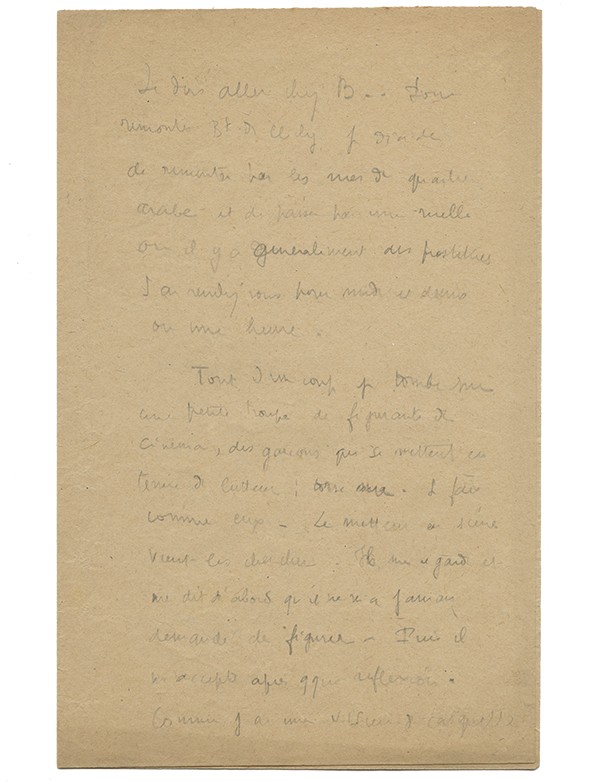 Je dois aller chez B..
remonter de Clichy, je
de remonter par les rues du quartier
arabe et de passer par une ruelle
où il y a generalement des prostituées
J'ai rendez vous pour midi et demi
ou une heure.
Tout d'un coup je tombe sur
une petite troupe de figurants de
cinéma, des garçons qui se mettent en
tenue de lutteur : torse nu. Je fais
comme eux - Le metteur en scène
vient les chercher. Il me regarde et
me dit d'abord qu'il ne m'a jamais
demandé de figurer - Puis il
m'accepte après qque reflexion.
Comme j'ai une